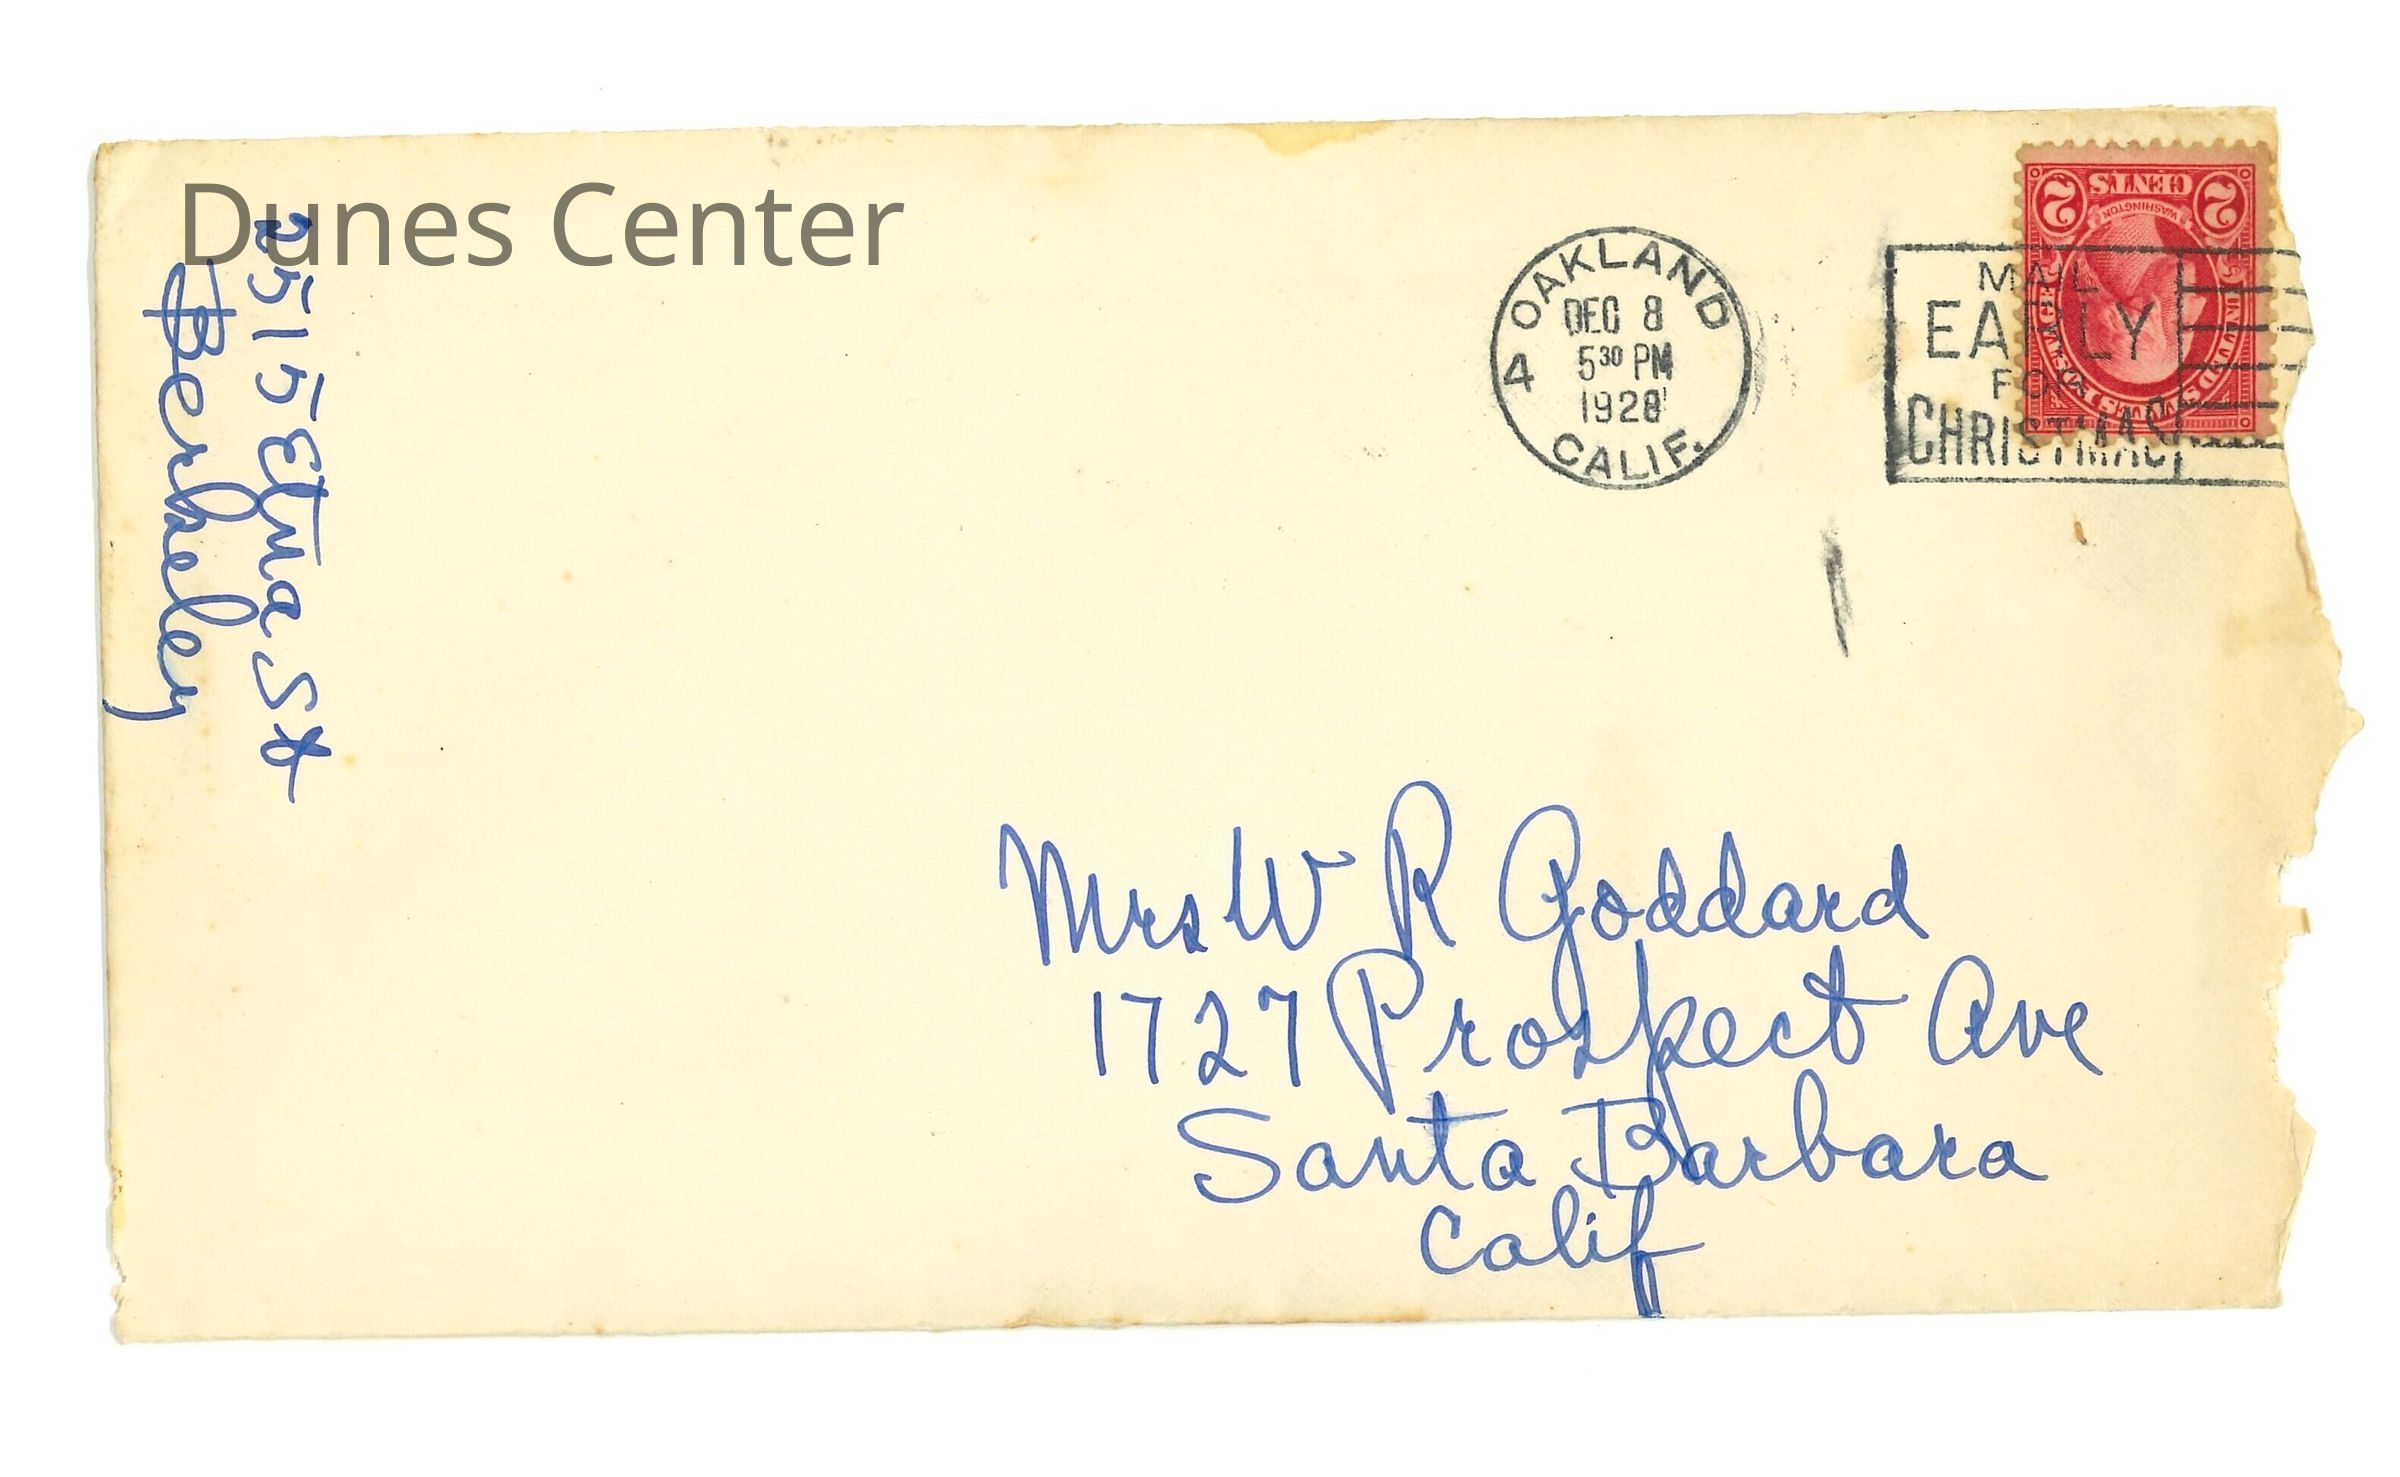 Dunes Center
2515 Etna St
Berkeley
4 OAKLAND CALIF.
DEC 8
5 30 PM
1928
MAIL
EARLY
FOR
CHRISTMAS
2 CENTS 2
WASHINGTON
UNITED STATES POSTAGE
Mrs W R Goddard
1727 Prospect Ave
Santa Barbara
Calif